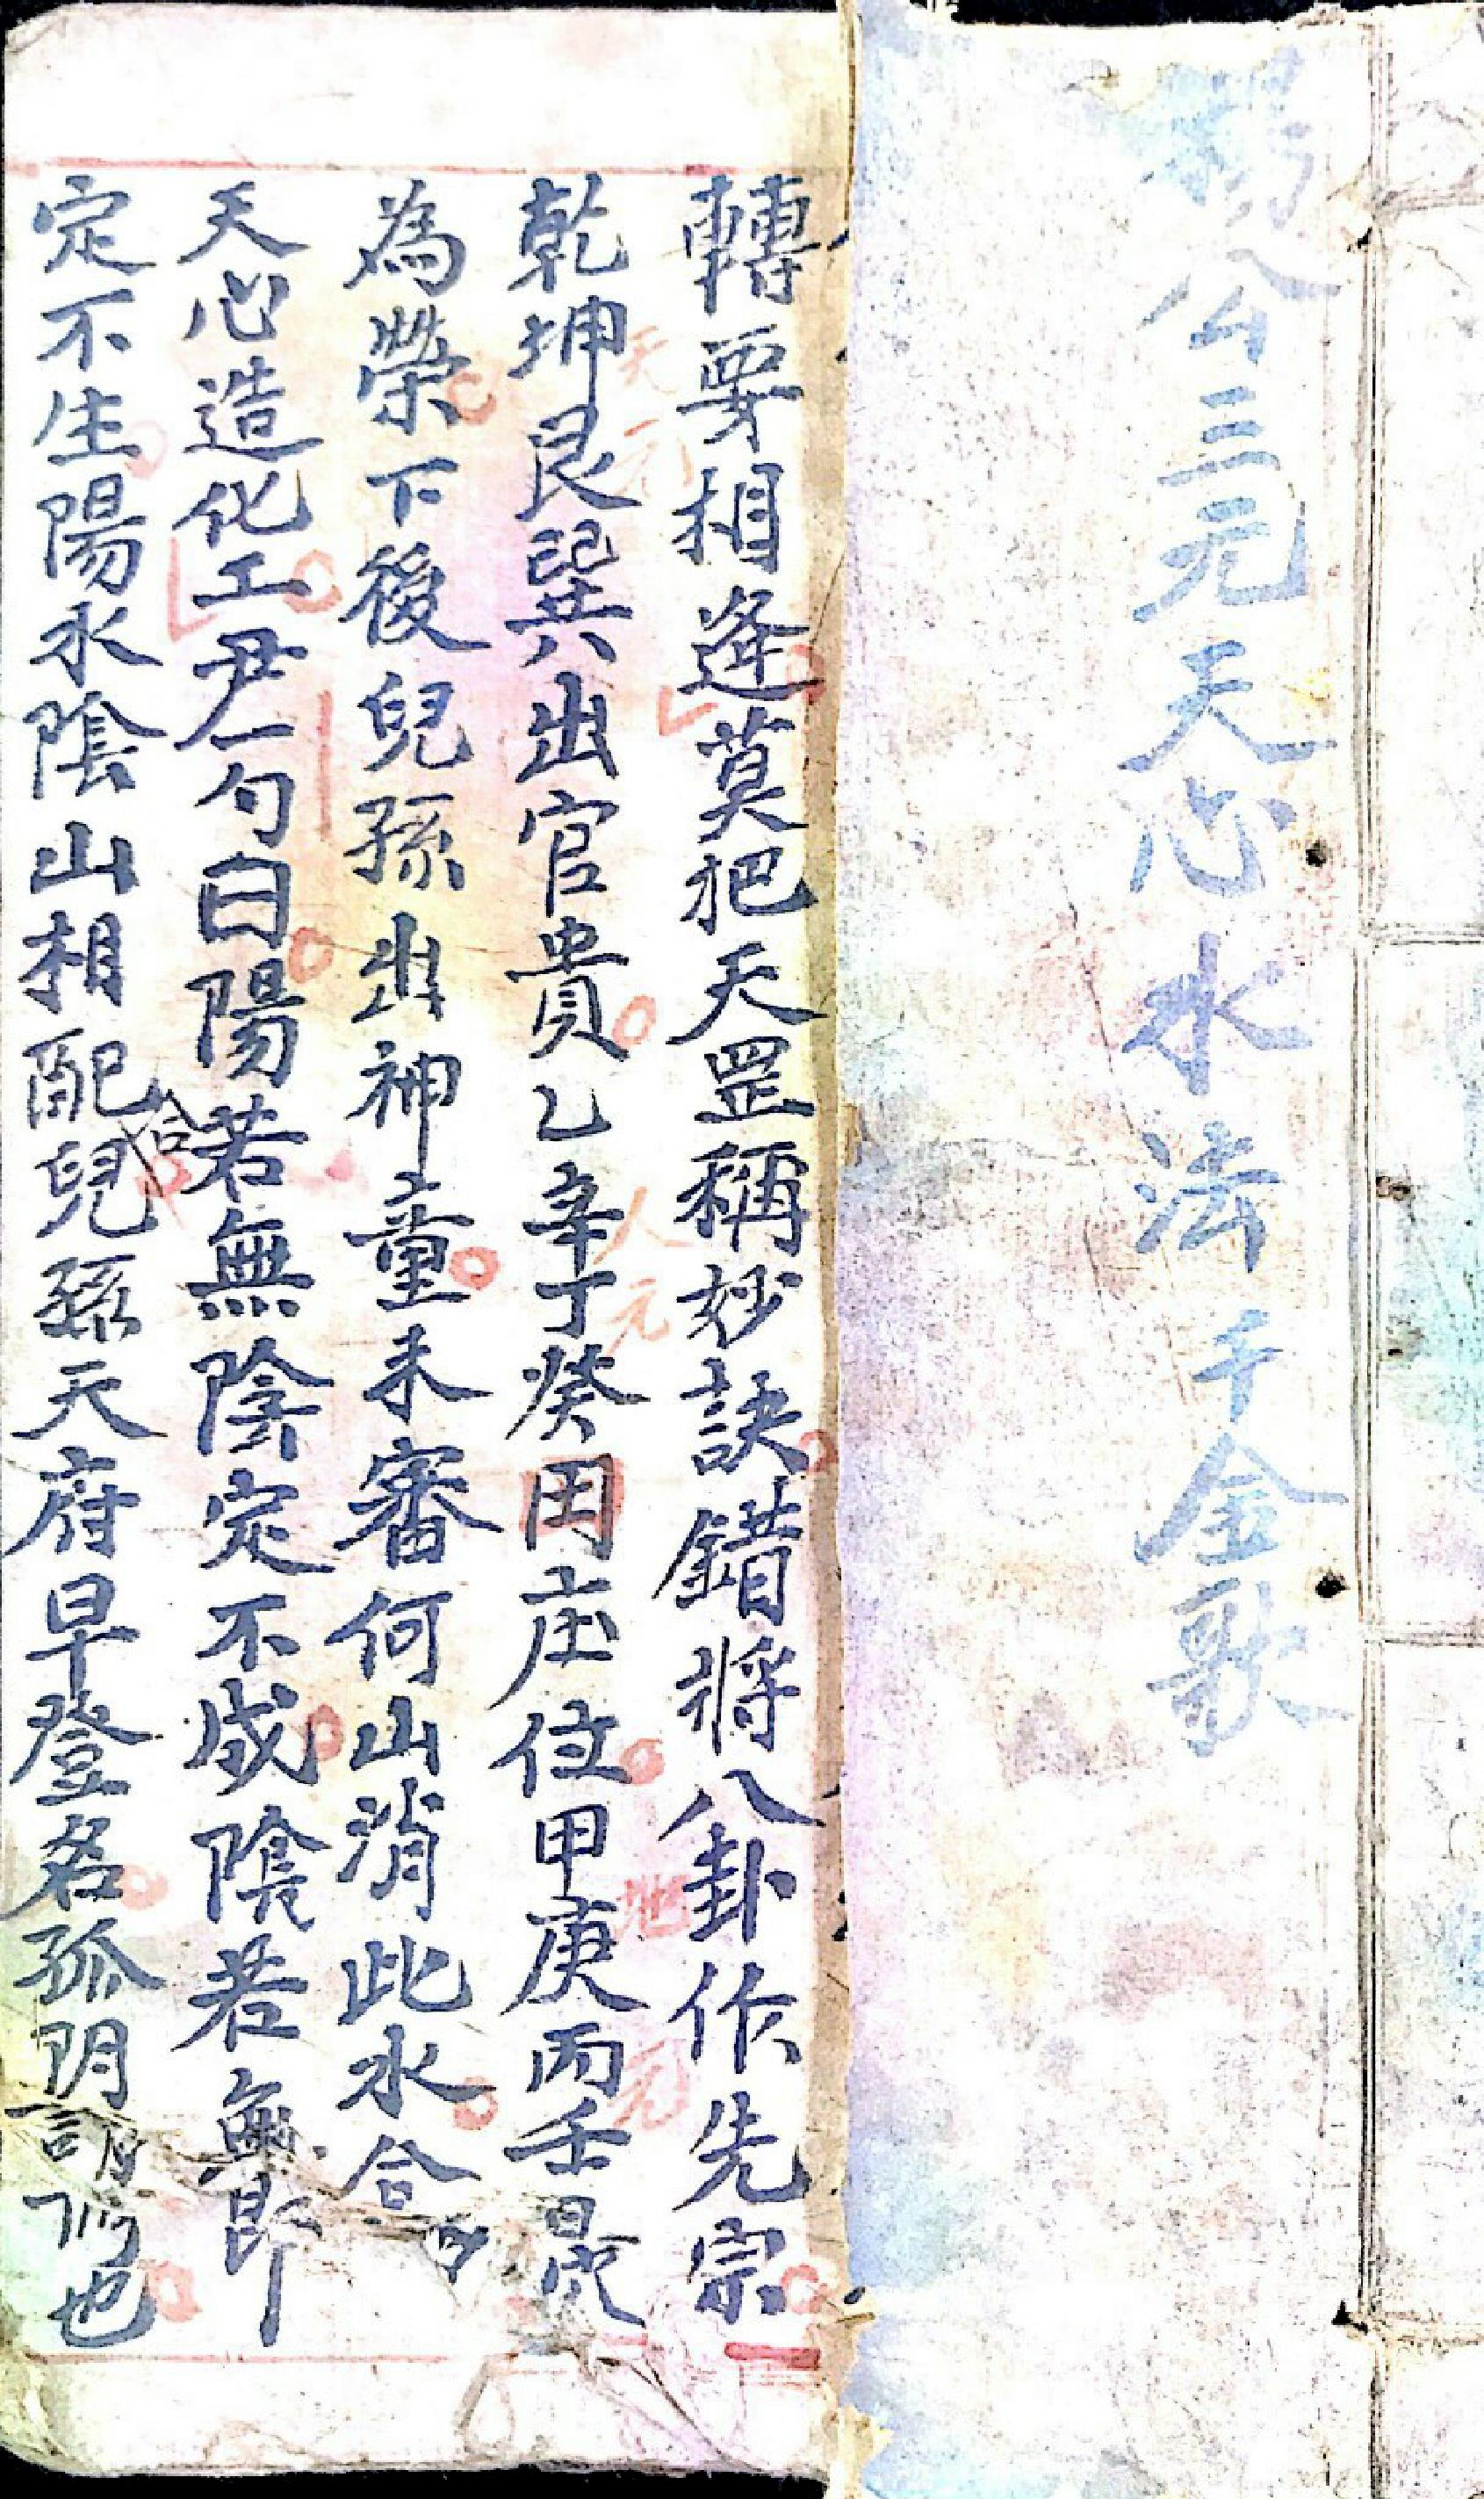 楊公三元天心水法千金歌
轉要相逢莫把天罡稱妙訣錯將八卦作先宗
乾坤艮巽共出官貴乙辛丁癸田庄位甲庚丙壬最
天元
人元
地元
為榮下後兒孫出神童未審何山消此水合
天心造化工尹一句曰陽若無陰定不成陰若無即
定不生陽水陰山相配兒孫天府早登名孤阴謂
也
合